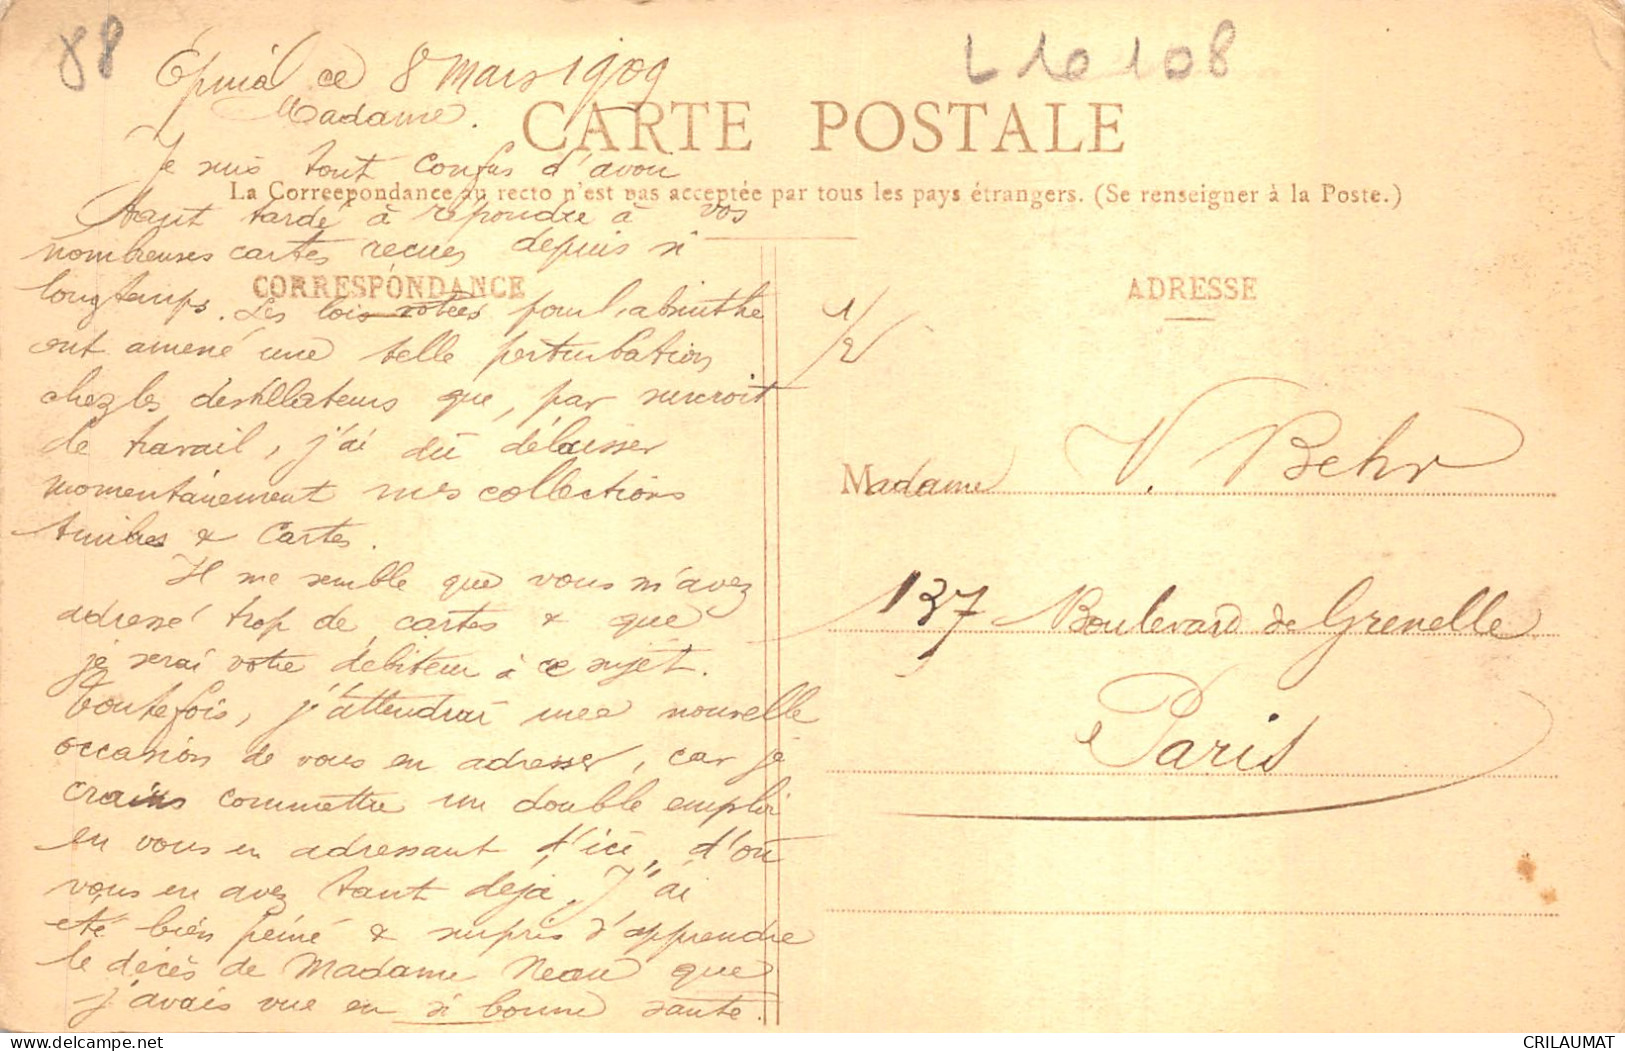 88
L10108
Epinal ce 8 Mars 1909
Madame.
CARTE POSTALE
La Correspondance au recto n'est pas acceptée par tous les pays étrangers. (Se renseigner à la Poste.)
CORRESPONDANCE
Je suis tout confus d'avoir
tant tardé à répondre à vos
nombreuses cartes reçues depuis si
longtemps. Les lois votées pour l'absinthe
ont amené une telle perturbation
chez les distillateurs que, par surcroit
de travail, j'ai dû délaisser
momentanément mes collections
timbres & cartes.
Il me semble que vous m'avez
adressé trop de cartes & que
je serai votre débiteur à ce sujet.
Toutefois, j'attendrai une nouvelle
occasion de vous en adresser, car je
crains commettre un double emploi
en vous en adressant "d'ici", d'où
vous en avez tant déjà. J'ai
été bien peiné & surpris d'apprendre
le décès de Madame Neau que
j'avais vue en si bonne santé.
1/2
ADRESSE
Madame V. Behr
137 Boulevard de Grenelle
Paris
CRILAUMAT